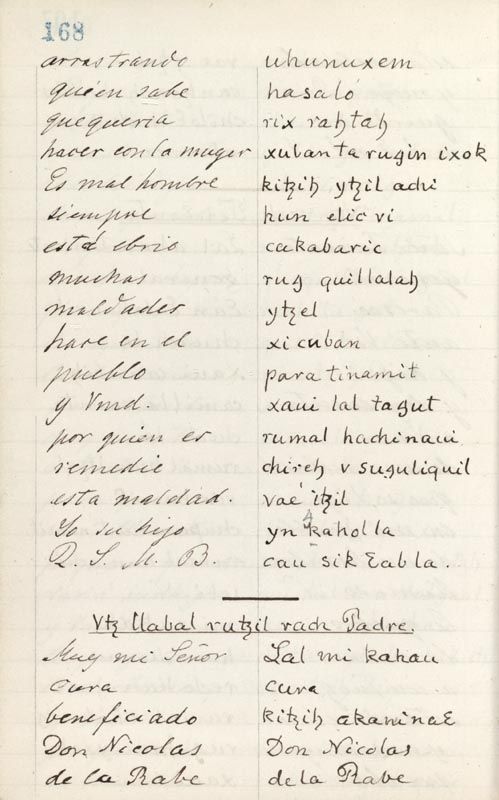 168
arrastrando uhunuxem
quien sabe hasaló
quequeria rix raḩtaḩ
hacer con la muger xubanta rugin ixok
Es mal hombre kitꜩiḩ ytꜩil achi
siempre hun elic vi
está ebrio cakabaric
muchas rug quillalaḩ
maldades ytꜩel
hace en el xi cuban
pueblo para tinamit
y Vmd. xaui lal tagut
por quien es rumal hachinaui
remedie chireḩ v suguliquil
esta maldad. vaé itꜩil
Yo su hijo yn 4 kaholla
Q. S. M. B. cau sik Ɛabla.
Vtꜩ llabal rutꜩil rach Padre.
Muy mi Señor Lal mi kahau
cura cura
beneficiado kitꜩiḩ akaminaƐ
Don Nicolas Don Nicolas
de la Rabe de la Rabe